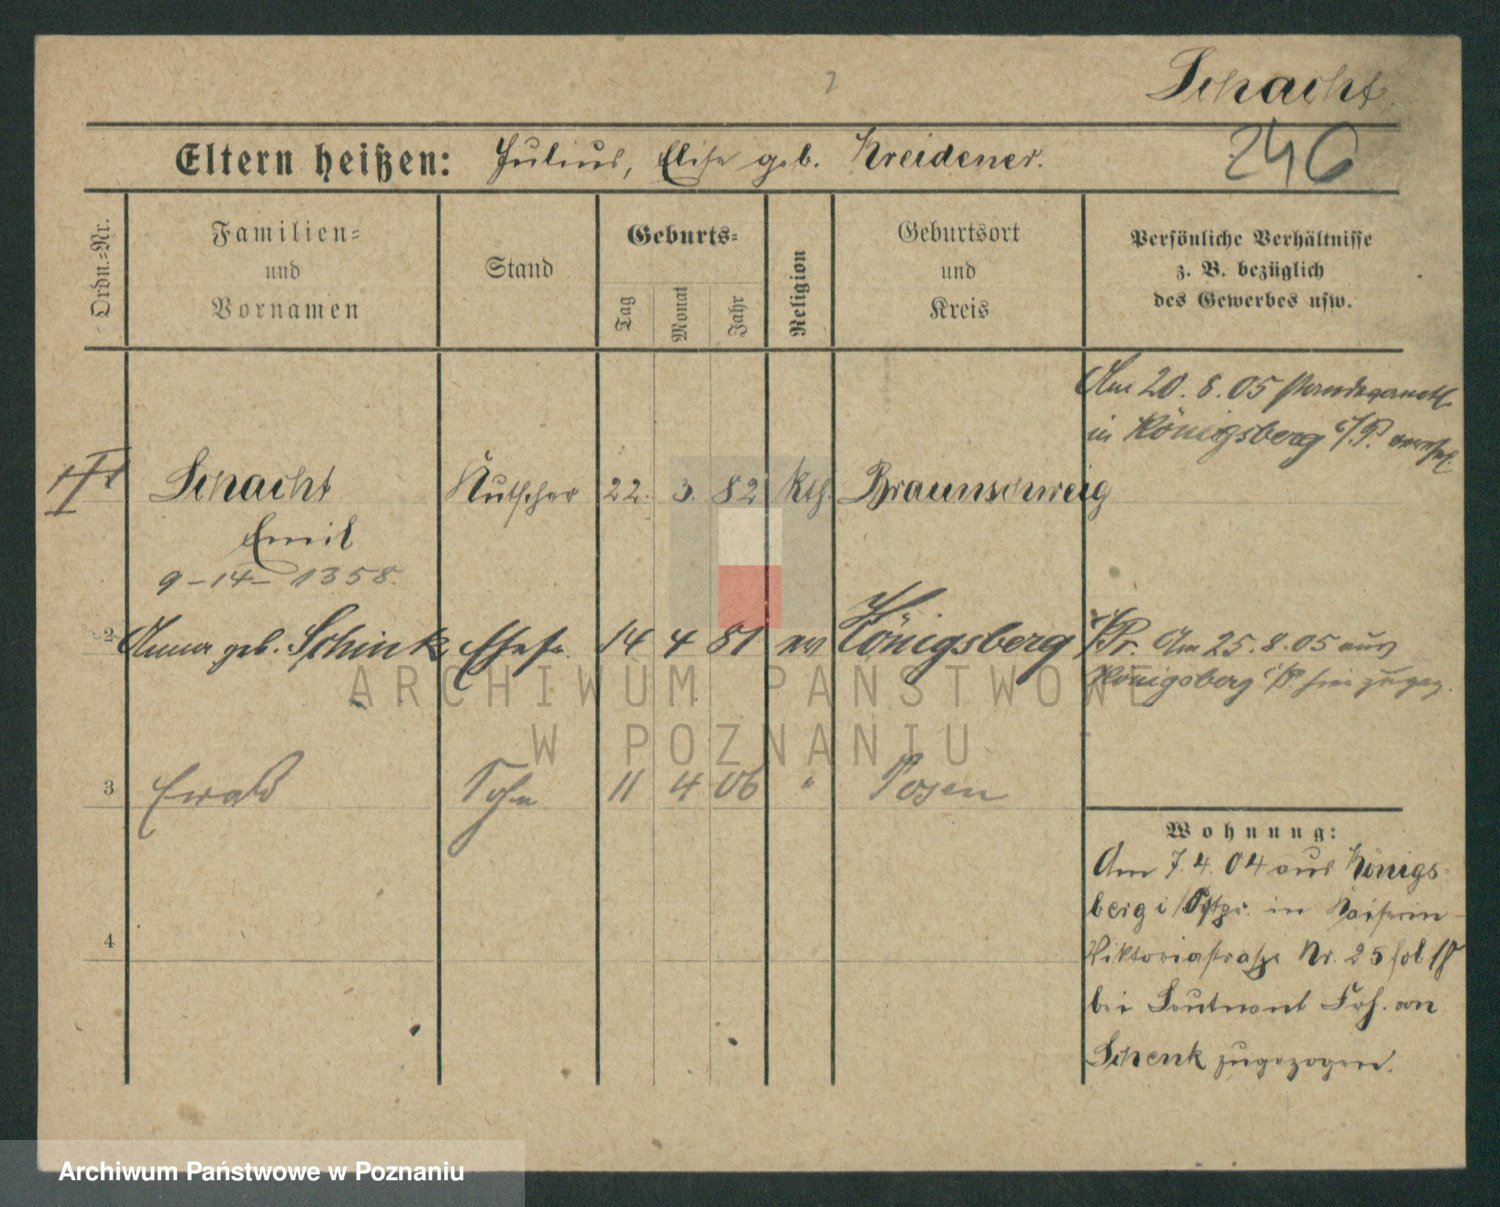 Schacht.
246
Eltern heißen: Julius, Elise geb. Kreidener.
Ordn.-Nr.
Familien-
und
Vornamen
Stand
Geburts-
Tag
Monat
Jahr
Religion
Geburtsort
und
Kreis
Persönliche Verhältnisse
z. B. bezüglich
des Gewerbes usw.
Am 20. 8. 05 standesamtl.
in Königsberg i/P.
Schacht Kutscher 22. 3. 82 kth. Braunschweig
Emil
9-14-1358.
2 Anna geb. Schink Ehefr. 14 4 81 ev Königsberg i/Pr. Am 25. 8. 05 aus
Königsberg i/P. hier zugez.
3 Ewald Sohn 11 4 06 " Posen
Wohnung:
Am 7. 4. 04 aus Königs-
berg i/Ostpr. in Kaiserin
4
Viktoriastraße Nr. 25 fol 18
bei Leutnant Frh. von
Schenk zugezogen.
ARCHIWUM PAŃSTWOWE
W POZNANIU
Archiwum Państwowe w Poznaniu